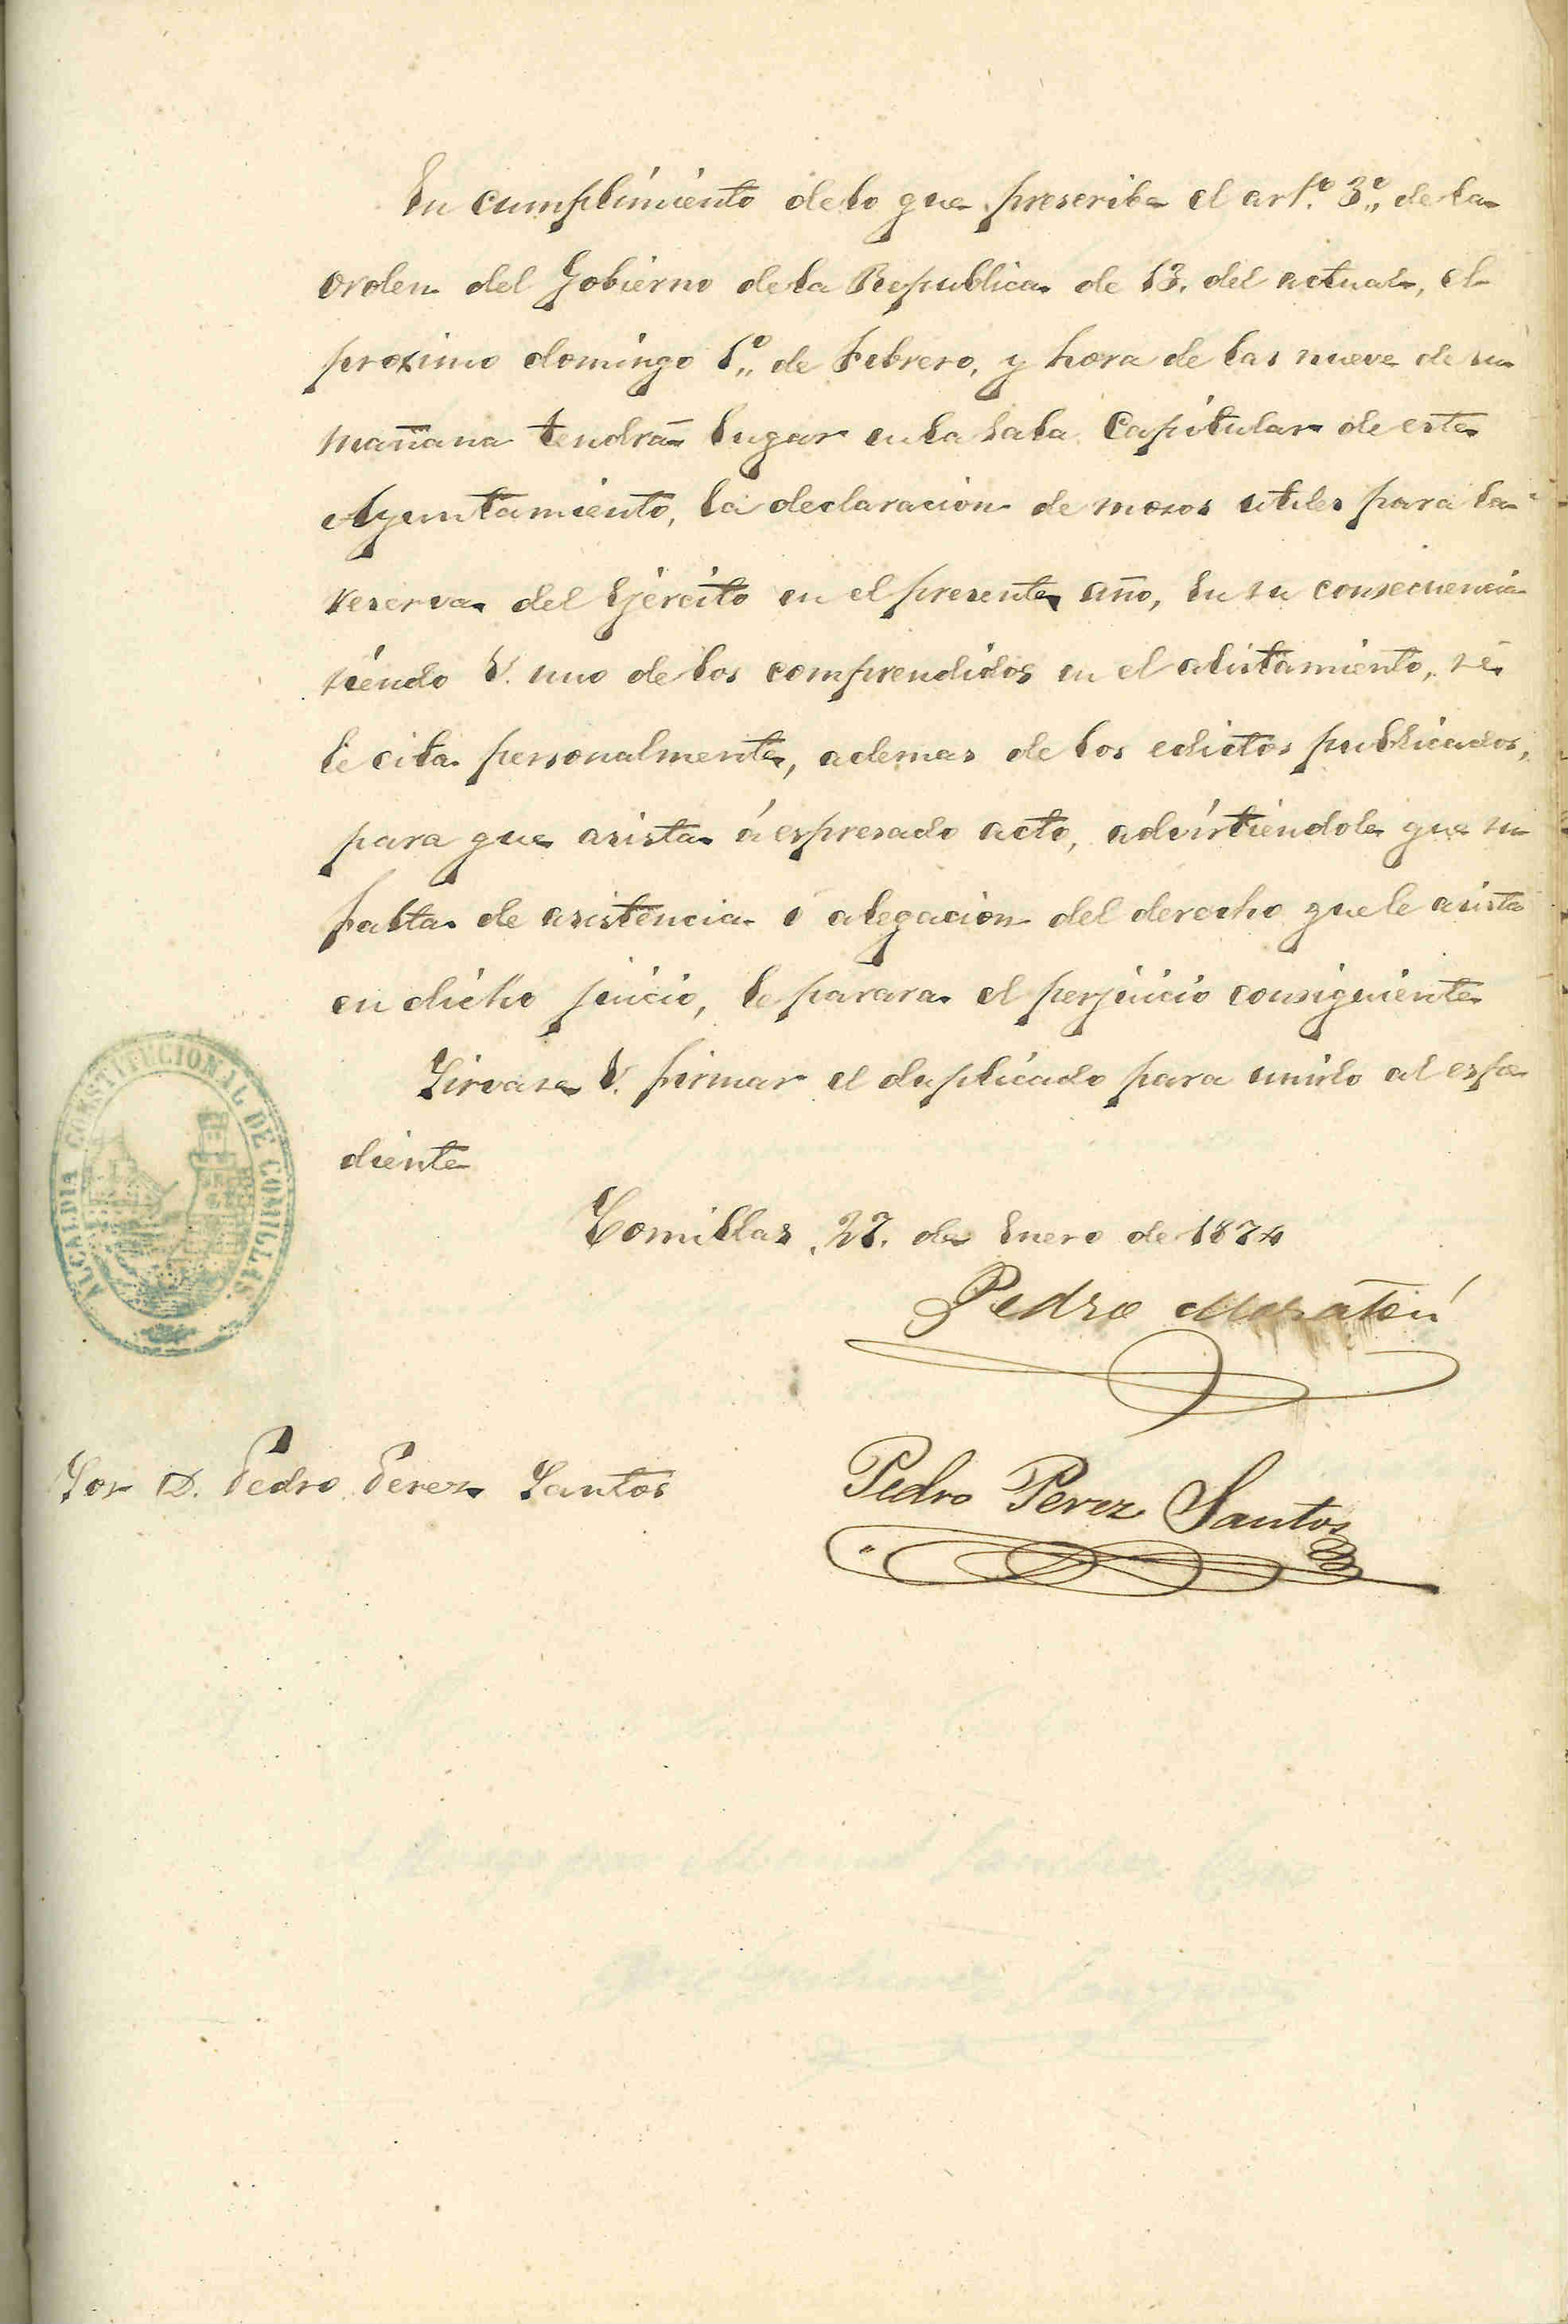 En cumplimiento de lo que prescribe el art.º 3º,, de la
orden del Gobierno de la Republica de 13. del actual, el
proximo domingo 1º,, de Febrero, y hora de las nueve de su
mañana tendrá lugar en la sala Capitular de este
Ayuntamiento, la declaracion de mosos utiles para la
reserva del Ejército en el presente año, En su consecuencia
siendo V. uno de los comprendidos en el alistamiento, sé
le cita personalmente, ademas de los edictos publicados,
para que asista á espresado acto, advirtiendole que su
falta de asistencia ó alegacion del derecho que le asista
en dicho juicio, le parara el perjuicio consiguiente
Sirvase V. firmar el duplicado para unirlo al espe
diente
ALCALDIA CONSTITUCIONAL DE COMILLAS.
Comillas, 27. de Enero de 1874
Pedro
Sor D. Pedro Perez Santos
Pedro Perez Santos